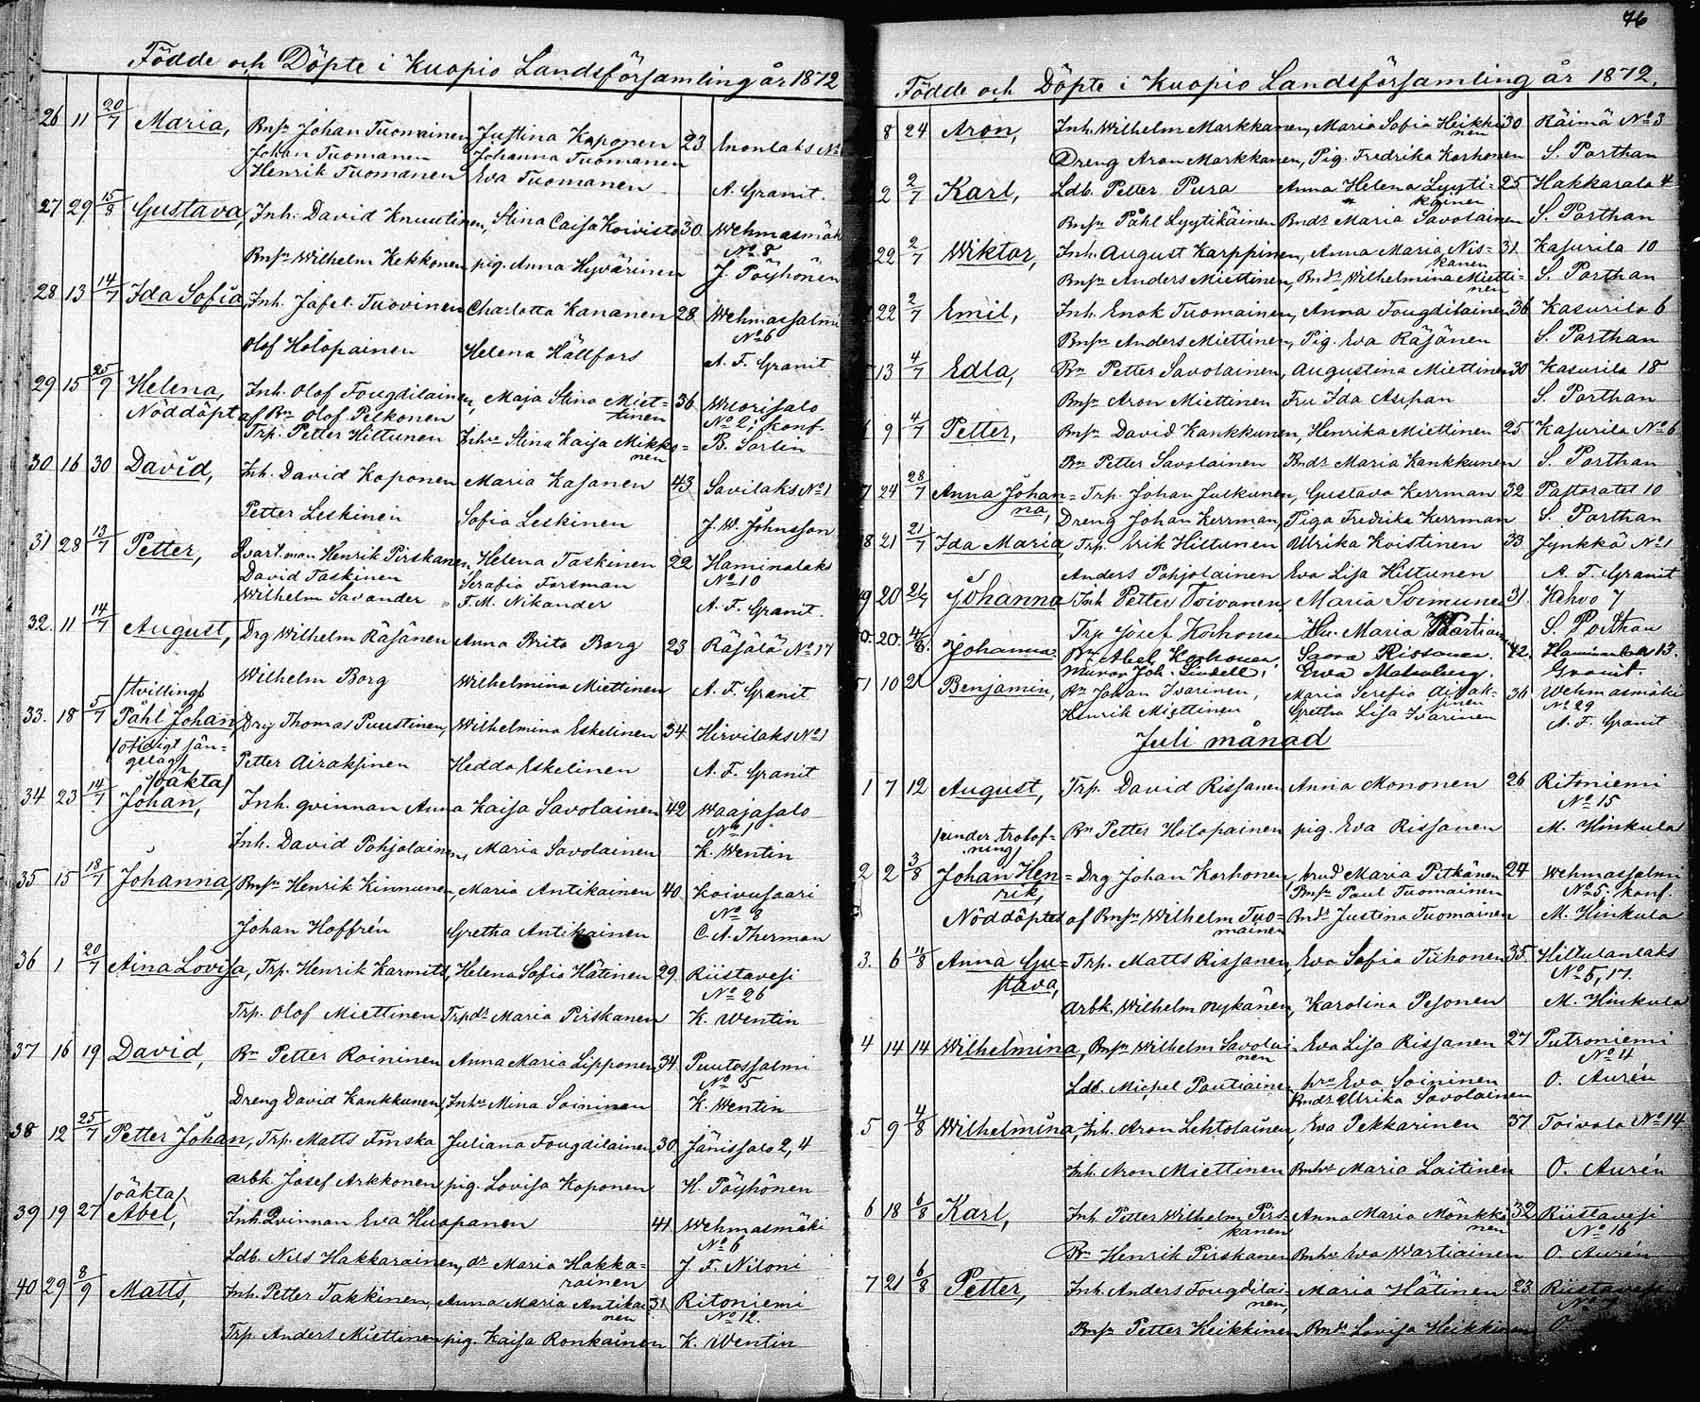 Födde och Döpte i Kuopio Landsförsamling år 1872
26 11 20/7 Maria, Bnsn Johan Tuomainen Justina Koponen 23 Enonlaks No
Johan Tuomanen Johanna Tuomanen
Henrik Tuomanen Eva Tuomanen A. Granit.
27 29 15/8 Gustava, Inh. David Knuutinen, Stina Caisa Koivisto 30 Wehmasmäk
No 8
Bnsn Wilhelm Kekkonen pig. Anna Hyvärinen J. Pöyhönen
28 13 14/7 Ida Sofia Inh. Jafet Tuovinen Charlotta Kananen 28 Wehmassalmi
No 6
Olof Holopainen Helena Hällfors A. F. Granit
29 15 25/9 Helena, Inh. Olof Fougdilainen, Maja Stina Miet= 36 Wuorisalo
tinen No 2; konf.
Nöddöpt af Bn Olof Pelkonen
Trp. Petter Hiltunen Inhn Stina Kaisa Mikko= B. Sorlin
nen
30 16 30 David, Inh. David Koponen Maria Kasanen 43 Savilaks No 1
Petter Leskinen Sofia Leskinen J. W. Johnsson
31 28 13/7 Petter, Qvart.man Henrik Pirskanen, Helena Taskinen 22 Haminalaks
David Taskinen Serafia Forsman No 10
Wilhelm Savander F. M. Nikander A. F. Granit.
32. 11 14/7 August, Drg Wilhelm Räsänen Anna Brita Borg 23 Räsälä No 17
Wilhelm Borg Wilhelmina Miettinen A. F. Granit
/tvilling/
33. 18 5/7 Påhl Johan, Drg Thomas Puustinen, Wilhelmina Eskelinen 34 Hirvilaks No 1
/otidigt sän=
gelag/ Petter Airaksinen Hedda Eskelinen A. F. Granit
/oäkta/
34 23 14/7 Johan, Inh. qvinnan Anna Kaisa Savolainen 42 Waajasalo
No 1
Inh. David Pohjolainen, Maria Savolainen K. Wentin
35 15 18/7 Johanna, Bnsn Henrik Kinnunen, Maria Antikainen 40 Koivusaari
No 3
Johan Hoffrén Gretha Antikainen C. A. Therman
36 1 20/7 Aina Lovisa, Trp. Henrik Karmitt, Helena Sofia Hätinen 29. Riistavesi
No 26
Trp. Olof Miettinen Trpdr Maria Pirskanen K. Wentin
37 16 19 David, Bn Petter Roininen Anna Maria Lipponen 34 Puutossalmi
No 5
Dreng David Kankkunen, Inhn Mina Soininen K. Wentin
38 12 25/7 Petter Johan, Trp. Matts Finska Juliana Fougdilainen 30. Jänissalo 2, 4
arbk Josef Arkkonen pig. Lovisa Koponen H. Pöyhönen
/oäkta/
39 19 27 Abel, Inh. Qvinnan Eva Huopanen 41 Wehmasmäki
No 6
Ldb. Nils Hakkarainen, dr Maria Hakka= J. F. Niloni
rainen
40 29 8/9 Matts, Inh. Petter Takkinen, Anna Maria Antikai 31 Ritoniemi
nen No 12.
Trp. Anders Miettinen pig. Kaisa Ronkainen K. Wentin
76
Födde och Döpte i Kuopio Landsförsamling år 1872.
8 24 Aron, Inh. Wilhelm Markkanen, Maria Sofia Heikki 30 Räimä No 3
nen
Dreng Aron Markkanen, Pig. Fredrika Korhonen S. Porthan
2 2/7 Karl, Ldb. Petter Pura Anna Helena Lyyti= 25 Hakkarala 4
käinen
Bnsn Påhl Lyytikäinen Bndr Maria Savolainen S. Porthan
22 2/7 Wiktor, Inh. August Karppinen, Anna Maria Nis= 31. Kasurila 10
kanen
Bnsn Anders Miettinen, Bndr Wilhelmina Mietti= S. Porthan
nen
22 2/7 Emil, Inh. Enok Tuomainen, Anna Fougdilainen 36 Kasurila 6
Bnsn Anders Miettinen, Pig. Eva Räsänen S. Porthan
13 4/7 Edla, Bn Petter Savolainen, Augustina Miettinen 30 Kasurila 18
Bnsn Aron Miettinen Fru Ida Asipan S. Porthan
9 4/7 Petter, Bnsn David Kankkunen, Henrika Miettinen 25 Kasurila No 6
Bn Petter Savolainen Bndr Maria Kankkunen S. Porthan
7 24 28/7 Anna Johan= Trp. Johan Julkunen, Gustava Kerrman 32 Pastoratet 10
na, Dreng Johan Kerrman, Piga Fredrika Kerrman S. Porthan
8 21 21/7 Ida Maria, Trp. Erik Hiltunen Ulrika Koistinen 33 Jynkkä No 1
Anders Pohjolainen Eva Lisa Hiltunen A. F. Granit
9 20 21/7 Johanna Inh Petter Toivanen Maria Sormunen 31. Kehvo 7
Trp Josef Korhonen Hu. Maria Wartiainen S. Porthan
0. 20. Johanna Bn Abel Korhonen, Saara Rissanen. 42. Haminalax 13.
Murar Joh. Lindell, Ewa Malmberg. Granit.
51 10 21 Benjamin, Bn Johan Ivarinen, Maria Serefia Airak= 36 Wehmasmäki
sinen No 29
Henrik Miettinen Gretha Lisa Ivarinen A. F. Granit
Juli månad
1 7 12 August, Trp. David Rissanen Anna Mononen 26 Ritoniemi
No 15
Bn Petter Holopainen pig. Eva Rissanen M. Hinkula
/under trolof=
ning/
2 2 3/8 Johan Hen= Drg Johan Korhonen, Maria Pitkänen 24 Wehmassalmi
rik, Bnsn Paul Tuomainen No 5; konf.
Nöddöptes af Bnsn Wilhelm Tuo= Bndr Justina Tuomainen M. Hinkula
mainen
3. 6 4/8 Anna Gu= Trp. Matts Rissanen, Eva Sofia Tiihonen 35. Hiltulanlaks
stava, No 5, 17.
Arbk. Wilhelm Nykänen, Karolina Pesonen M. Hinkula
4 14 14 Wilhelmina, Bnsn Wilhelm Savolai= Eva Lisa Rissanen 27 Putroniemi
nen No 4
Ldb. Michel Pautiainen hru Eva Soininen O. Aurén
Bndr Ulrika Savolainen
5 9 4/8 Wilhelmina, Inh. Aron Lehtolainen, Eva Pekkarinen 37. Toivola No 14
Inh. Aron Miettinen Bnhu Maria Laitinen O. Aurén
6 18 6/8 Karl, Inh. Petter Wilhelm Pirs= Anna Maria Mönkkö 32 Riistavesi
kanen nen No 16
Bn Henrik Pirskanen Bnhu Eva Wartiainen O. Aurén
7 21 6/8 Petter, Inh. Anders Fougdilai Maria Hätinen 23 Riistavesi
nen, No
Bnsn Petter Heikkinen Bndr Lovisa Heikkinen O.